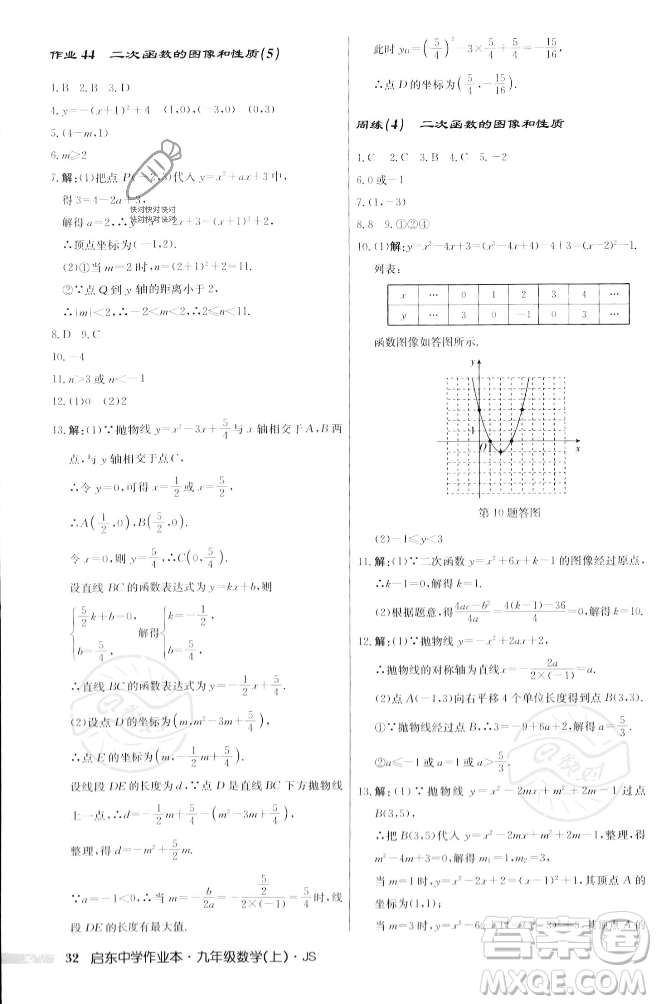 作业 44 二次函数的图像和性质(5)
1.B 2.B 3.D
4.y=-(x+1)²+4 (1,0),(-3,0)
5.(4-m,1)
6.m≥2
7.解:(1)把点 P(-2,3)代入 y=x²+ax+3 中,
得 3=4-2a+3,
解得 a=2,∴y=x²+2x+3=(x+1)²+2,
∴顶点坐标为(-1,2).
(2)①当 m=2 时,n=(2+1)²+2=11.
②∵点 Q 到 y 轴的距离小于 2,
∴|m|<2,∴-2<m<2,∴2≤n<11.
8.D 9.C
10.-4
11.n>3 或 n=-1
12.(1)0 (2)2
13.解:(1)∵抛物线 y=x²-3x+5/4 与 x 轴相交于 A,B 两
点,与 y 轴相交于点 C,
∴令 y=0,可得 x=1/2 或 x=5/2,
∴A(1/2,0),B(5/2,0).
令 x=0,则 y=5/4,∴C(0,5/4).
设直线 BC 的函数表达式为 y=kx+b,
{5/2k+b=0, b=5/4, 解得{k=-1/2, b=5/4,
∴直线 BC 的函数表达式为 y=-1/2x+5/4.
(2)设点 D 的坐标为(m,m²-3m+5/4),
∴点 E 的坐标为(m,-1/2m+5/4).
设线段 DE 的长度为 d,∵点 E 是直线 BC 上方抛物线
上一点,∴d=-1/2m+5/4-(m²-3m+5/4),
整理,得 d=-m²+5/2m.
∵a=-1<0,∴当 m=-b/2a=-(5/2)/(-2)=5/4 时,线
段 DE 的长度有最大值.
32 启东中学作业本·九年级数学(上)·JS
此时 y_D=(5/4)²-3×5/4+5/4=-15/16,
∴点 D 的坐标为(5/4,-15/16).
周练(4) 二次函数的图像和性质
1.C 2.C 3.C 4.C 5.-2
6.0 或-1
7.(1,-3)
8.8 9.①②④
10.(1)解:y=x²-4x+3=(x-2)²-1.
列表:
x … 0 1 2 3 …
y … 3 0 -1 0 3 …
函数图像如答图所示.
y
1
O 1 x
第 10 题答图
(2)-1≤y<3
11.解:(1)∵二次函数 y=x²+6x+k-1 的图像经过原点,
∴k-1=0,解得 k=1.
(2)根据题意,得(4ac-b²)/4a=(4(k-1)-36)/4=0,解得 k=10.
12.解:(1)∵抛物线 y=-x²+2ax+a,
∴抛物线的对称轴为直线 x=-2a/(2×(-1))=a.
(2)点 A(-1,3)向右平移 4 个单位长度,得点 B(3,3).
①∵抛物线经过点 B(3,3),∴3=-9+6a+2,解得 a=5/3.
②a≤-1 或 a≥5/3
13.解:(1)∵抛物线 y=-x²+2mx-m²+2m+1 经过点
B(3,5),
∴把 B(3,5)代入 y=-x²+2mx-m²+2m+1,整理,
得 m²-8m+13=0,解得 m₁=1,m₂=
当 m=1 时,y=-x²+2x+2=-(x-1)²+3,其顶点 A 的
坐标为(1,3);